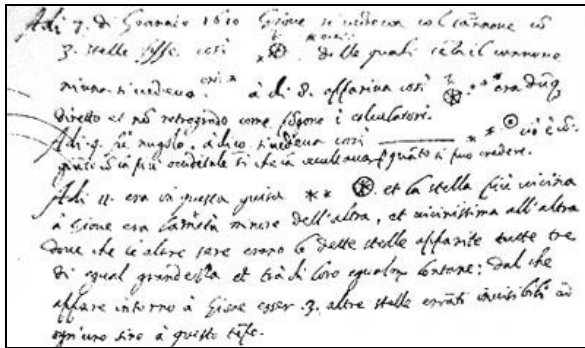 Adi 7. di Gennaio 1610 Giove si vedeva col Cannone cõ
3. stelle fisse così delle quali sẽza il cannone
niuna si vedeva. à dì 8. appariva così era dũq
diretto et nõ retrogrado come i calculatori.
Adi 9. fù nugolo. à dì 10. si vedeva così cioè cõ
giũto cõ la più occidẽtale si che la occultava p quãto si può credere.
Adi 11. era in questa guisa et la stella più vicina
à Giove era la metà minore dell'altra, et vicinissima all'altra
dove che le altre sere erano le dette stelle apparite tutte tre
di egual grandezza et trà di loro egualm lontane; dal che
appare intorno à Giove esser .3. altre stelle errãti invisibili ad
ogn'uno sino à questo tẽpo.